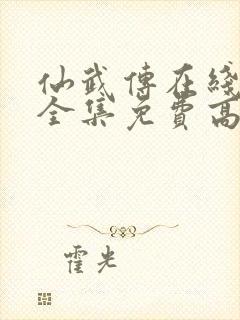 仙武傳在綫
全集免費高
霍光